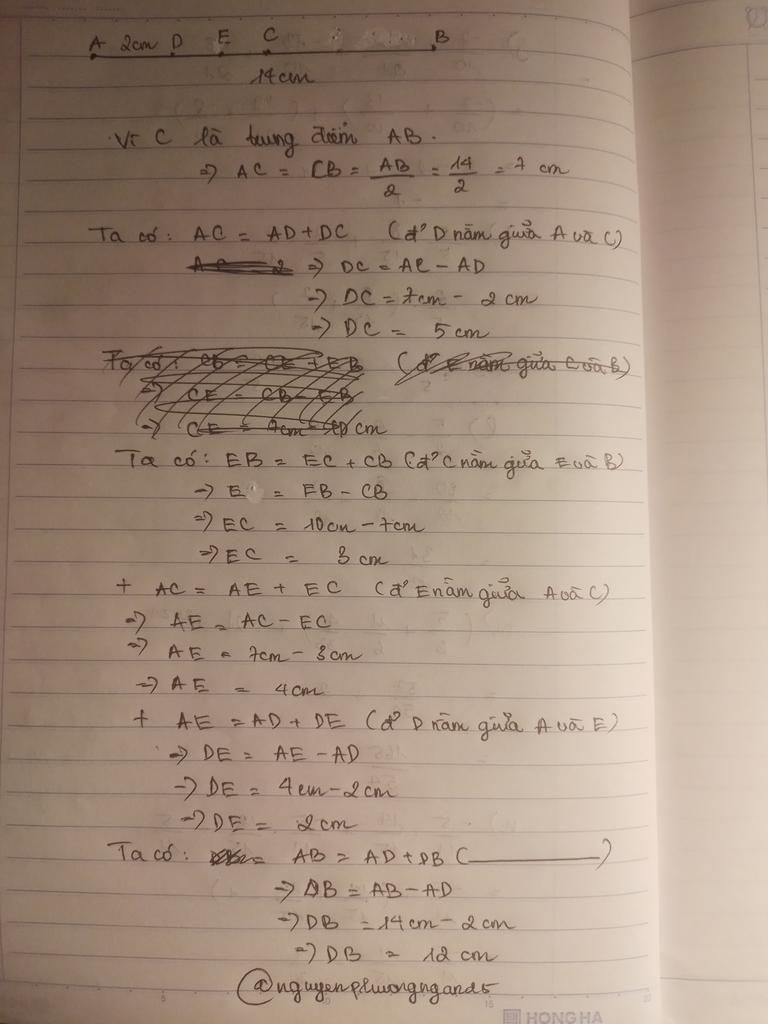 A 2cm D E C B
14cm
Vì C là trung điểm AB.
=> AC = CB = AB/2 = 14/2 = 7 cm
Ta có: AC = AD + DC (đ² D nằm giữa A và C)
=> DC = AC - AD
=> DC = 7cm - 2 cm
=> DC = 5 cm
Ta có: CB = CE + EB (đ² E nằm giữa C và B)
=> CE = CB - EB
=> CE = 7cm - 10 cm
Ta có: EB = EC + CB (đ² C nằm giữa E và B)
=> E = EB - CB
=> EC = 10cm - 7cm
=> EC = 3 cm
+ AC = AE + EC (đ² E nằm giữa A và C)
=> AE = AC - EC
=> AE = 7cm - 3cm
=> AE = 4cm
+ AE = AD + DE (đ² D nằm giữa A và E)
=> DE = AE - AD
=> DE = 4cm - 2cm
=> DE = 2cm
Ta có: AB = AD + DB ( )
=> DB = AB - AD
=> DB = 14cm - 2cm
=> DB = 12 cm
@nguyenphuongngand5
HONG HA